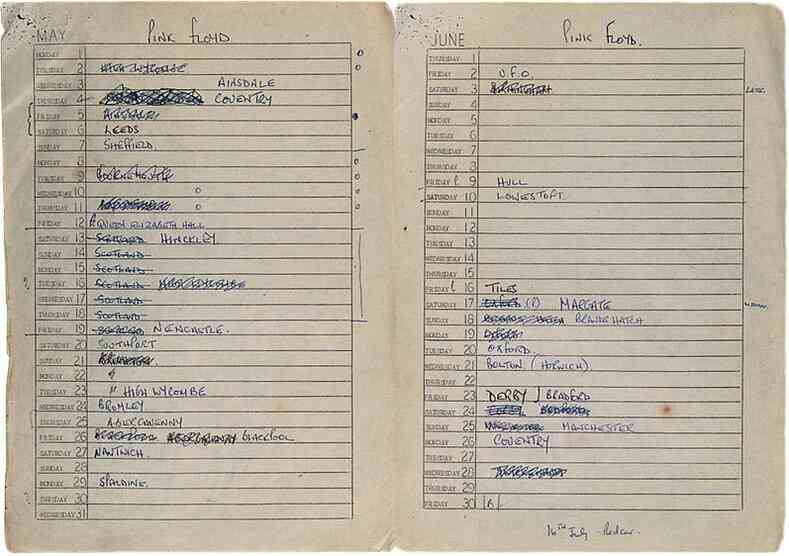 MAY PINK FLOYD
MONDAY 1
TUESDAY 2 HIGH WYCOMBE
WEDNESDAY 3 AINSDALE
THURSDAY 4 COVENTRY
FRIDAY 5
SATURDAY 6 LEEDS
SUNDAY 7 SHEFFIELD.
MONDAY 8
TUESDAY 9 BOURNEMOUTH
WEDNESDAY 10
THURSDAY 11
FRIDAY 12 QUEEN ELIZABETH HALL
SATURDAY 13 SCOTLAND HINCKLEY
SUNDAY 14 SCOTLAND
MONDAY 15 SCOTLAND
TUESDAY 16 SCOTLAND
WEDNESDAY 17 SCOTLAND
THURSDAY 18 SCOTLAND
FRIDAY 19 NEWCASTLE.
SATURDAY 20 SOUTHPORT
SUNDAY 21
MONDAY 22
TUESDAY 23 " HIGH WYCOMBE
WEDNESDAY 24 BROMLEY
THURSDAY 25 ABERGAVENNY
FRIDAY 26 ABERGAVENNY BLACKPOOL
SATURDAY 27 NANTWICH.
SUNDAY 28
MONDAY 29 SPALDING.
TUESDAY 30
WEDNESDAY 31
JUNE PINK FLOYD.
THURSDAY 1
FRIDAY 2 U.F.O.
SATURDAY 3
SUNDAY 4
MONDAY 5
TUESDAY 6
WEDNESDAY 7
THURSDAY 8
FRIDAY 9 HULL
SATURDAY 10 LOWESTOFT.
SUNDAY 11
MONDAY 12
TUESDAY 13
WEDNESDAY 14
THURSDAY 15
FRIDAY 16 TILES
SATURDAY 17 MARGATE
SUNDAY 18 BRANDS HATCH
MONDAY 19
TUESDAY 20 OXFORD.
WEDNESDAY 21 BOLTON. (HORWICH).
THURSDAY 22
FRIDAY 23 DERBY BRADFORD
SATURDAY 24
SUNDAY 25 MANCHESTER
MONDAY 26 COVENTRY
TUESDAY 27
WEDNESDAY 28
THURSDAY 29
FRIDAY 30
16TH July - Redcar.